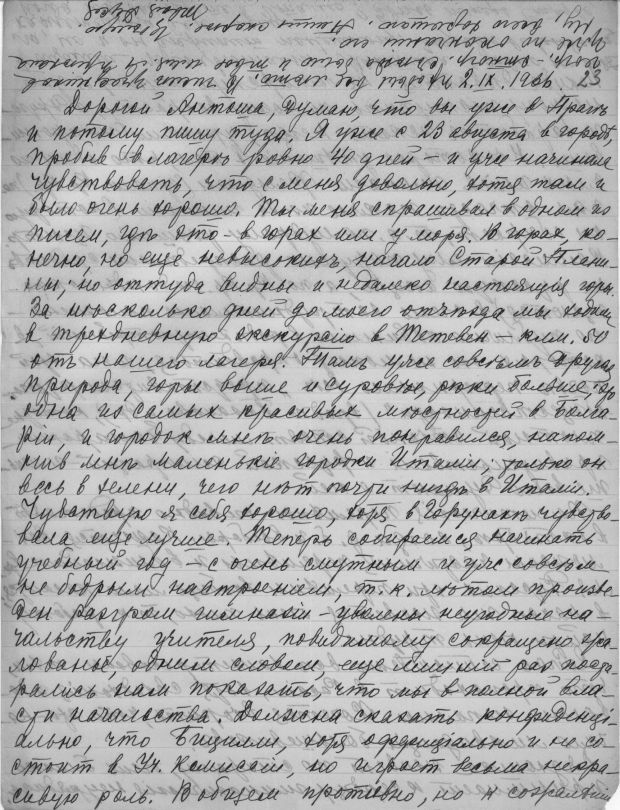 2.IX.1936 23
Дорогой Антоша, думаю, что вы уже в Праге
и потому пишу туда. Я уже с 23 августа в городѣ,
пробыв в лагерѣ ровно 40 дней – и уже начинала
чувствовать, что с меня довольно, хотя там и
было очень хорошо. Ты меня спрашивал в одном из
писем, гдѣ это – в горах или у моря. В горах, ко-
нечно, но еще невысоких, начало Старой Плани-
ны, но оттуда видны и недалеко настоящия горы.
За нѣсколько дней до моего отъѣзда мы ходили
в трехдневную экскурсію в Тетевен – клм. 50
отъ нашего лагеря. Тамъ уже совсѣмъ другая
природа, горы выше и суровѣе, рѣки больше, это
одна из самых красивых мѣстностей в Болга-
ріи и городок мнѣ очень понравился, напом-
нив мнѣ маленькіе городки Италіи, только он
весь в зелени, чего нѣт почти нигдѣ в Италіи.
Чувствую я себя хорошо, хотя в чувство-
вала еще лучше. Теперь собираемся начинать
учебный год – с очень смутным и уже совсѣм
не бодрым настроеніем, т.к. лѣтом произве-
ден разгром гимназіи – уволены неугодные на-
чальству учителя, повидимому сокращено жа-
лованье, одним словом, еще лишній раз поста-
рались нам показать, что мы в полной вла-
сти начальства. Должна сказать конфиденці-
ально, что Бицилли, хотя оффиціально и не со-
стоит в Уч. Комиссіи, но играет весьма некра-
сивую роль. В общем противно, но и